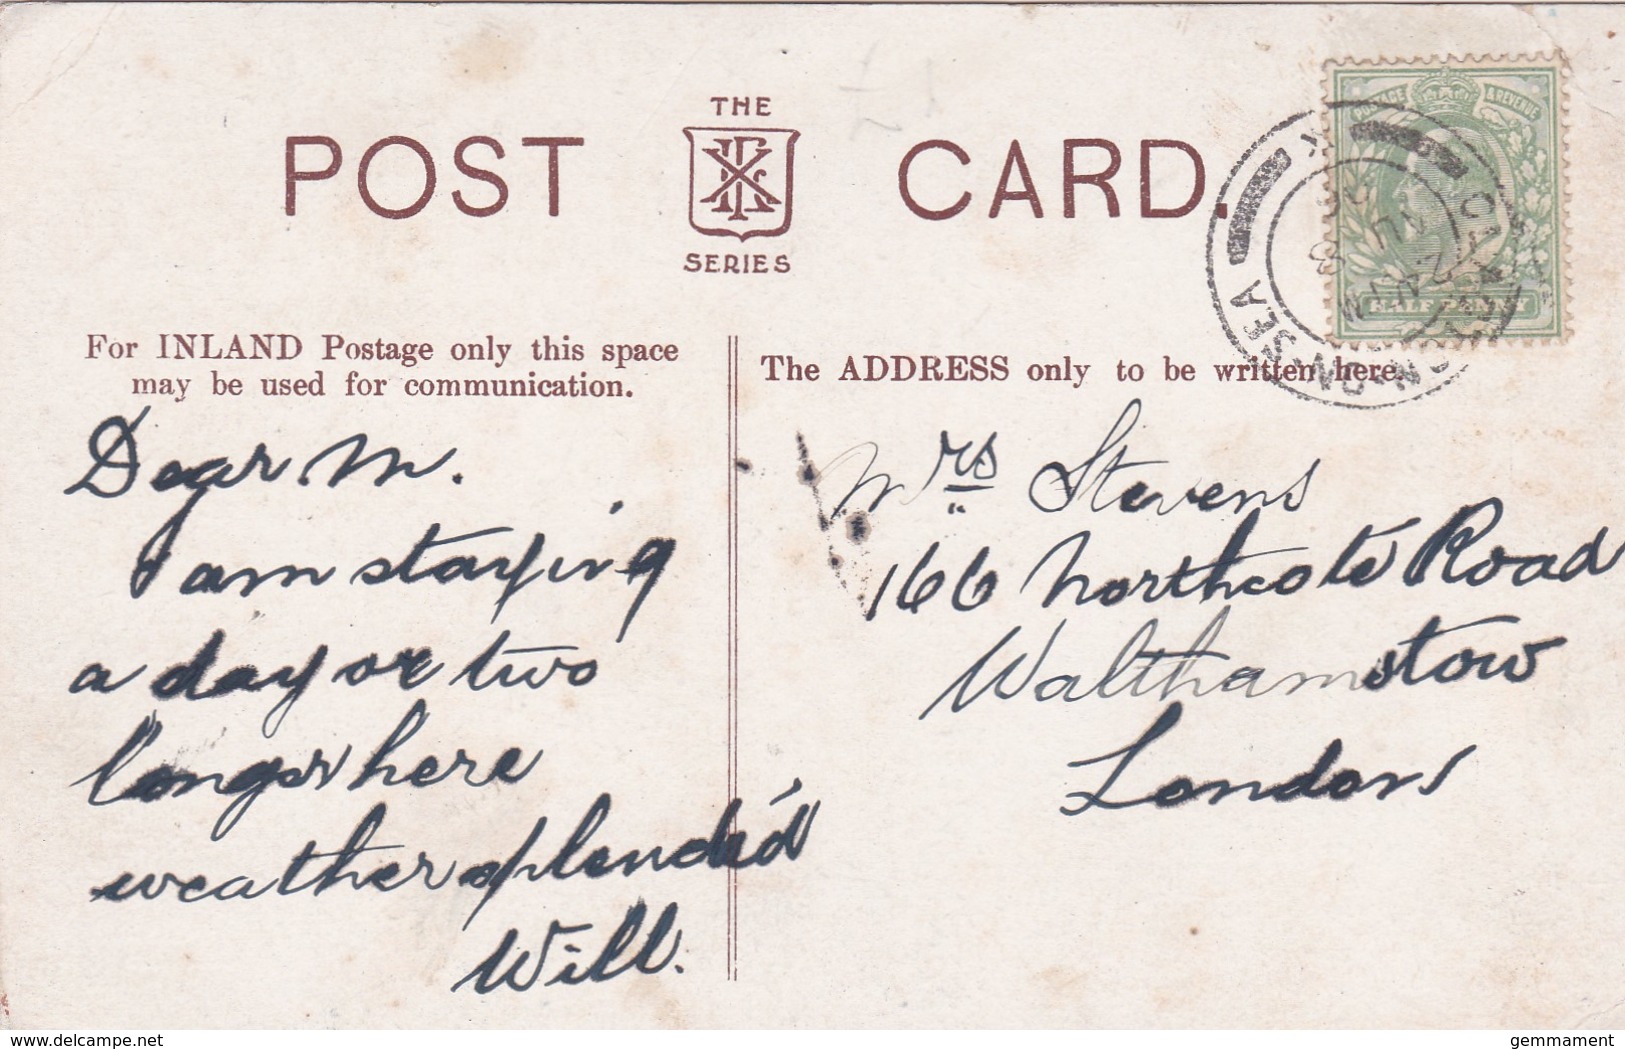 THE
POST CARD.
SERIES
For INLAND Postage only this space
may be used for communication.
The ADDRESS only to be written here.
POSTAGE & REVENUE
HALF PENNY
CLACTON-ON-SEA
JU
Dear M.
I am staying
a day or two
longer here
weather splendid
Will.
Mrs Stevens
166 Northcote Road
Walthamstow
London
delcampe.net
gemmament